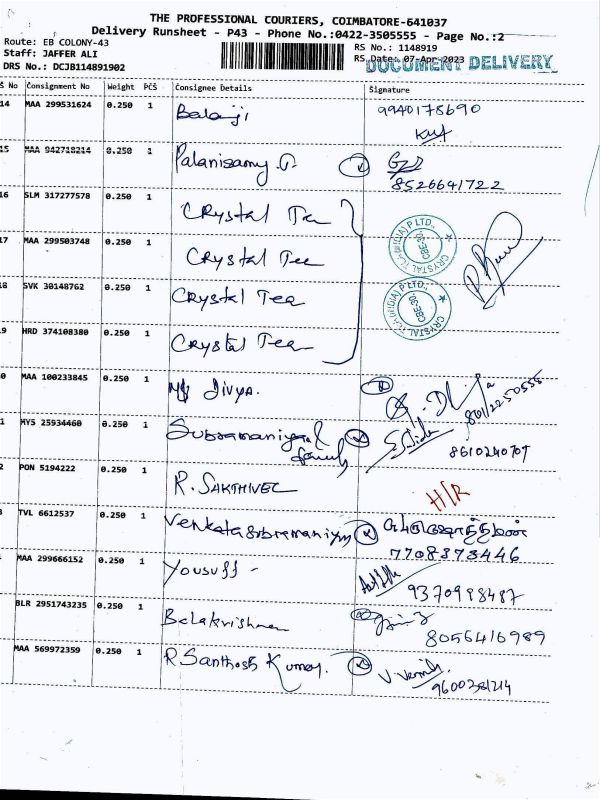 THE PROFESSIONAL COURIERS, COIMBATORE-641037
Delivery Runsheet - P43 - Phone No.:0422-3505555 - Page No.:2
Route: EB COLONY-43
Staff: JAFFER ALI
DRS No.: DCJB114891902
RS No.: 1148919
RS Date: 07-Apr-2023
DOCUMENT DELIVERY
S No Consignment No Weight PCS Consignee Details Signature
14 MAA 299531624 0.250 1 Balaji 9940178690
15 MAA 942718214 0.250 1 Palanisamy G. 8526641722
16 SLM 317277578 0.250 1 Crystal Tea
17 MAA 299503748 0.250 1 Crystal Tee
18 SVK 30148762 0.250 1 Crystal Tea
19 HRD 374108380 0.250 1 Crystal Tea
CRYSTAL TEA (INDIA) P LTD. CBE-30
CRYSTAL TEA (INDIA) P LTD. CBE-30
0 MAA 100233845 0.250 1 Divya.
1 MYS 25934460 0.250 1 Subramaniyam & family 8610240707
2 PON 5194222 0.250 1 R. SAKTHIVEL H/R
3 TVL 6612537 0.250 1 Venkatasubramaniyam 7708373446
MAA 299666152 0.250 1 Yousuff - 9370998487
BLR 2951743235 0.250 1 Balakrishnan 8056416989
MAA 569972359 0.250 1 R Santhosh Kumar. 9600381214